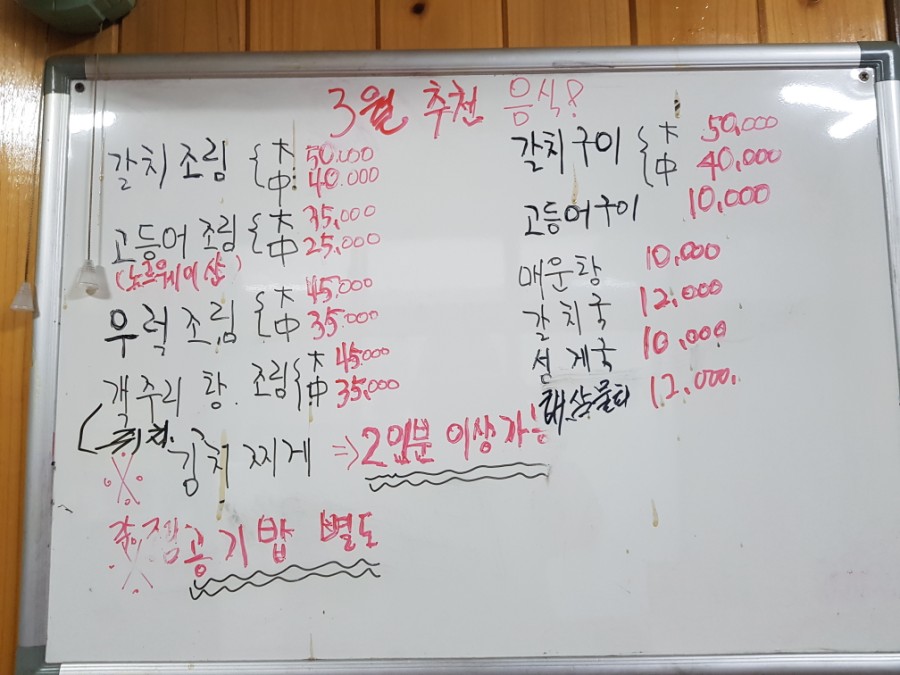 3월 추천 음식!
갈치 조림 { 大 50,000
中 40,000
고등어 조림 { 大 35,000
中 25,000
(노르웨이 산)
우럭 조림 { 大 45,000
中 35,000
객주리 탕. 조림 { 大 45,000
中 35,000
쥐치.
※ 김치 찌게 ⇒ 2인분 이상 가능
※ 공기밥 별도
갈치구이 { 大 50,000
中 40,000
고등어구이 10,000
매운탕 10,000
갈치국 12,000
성게국 10,000
해산물 12,000.